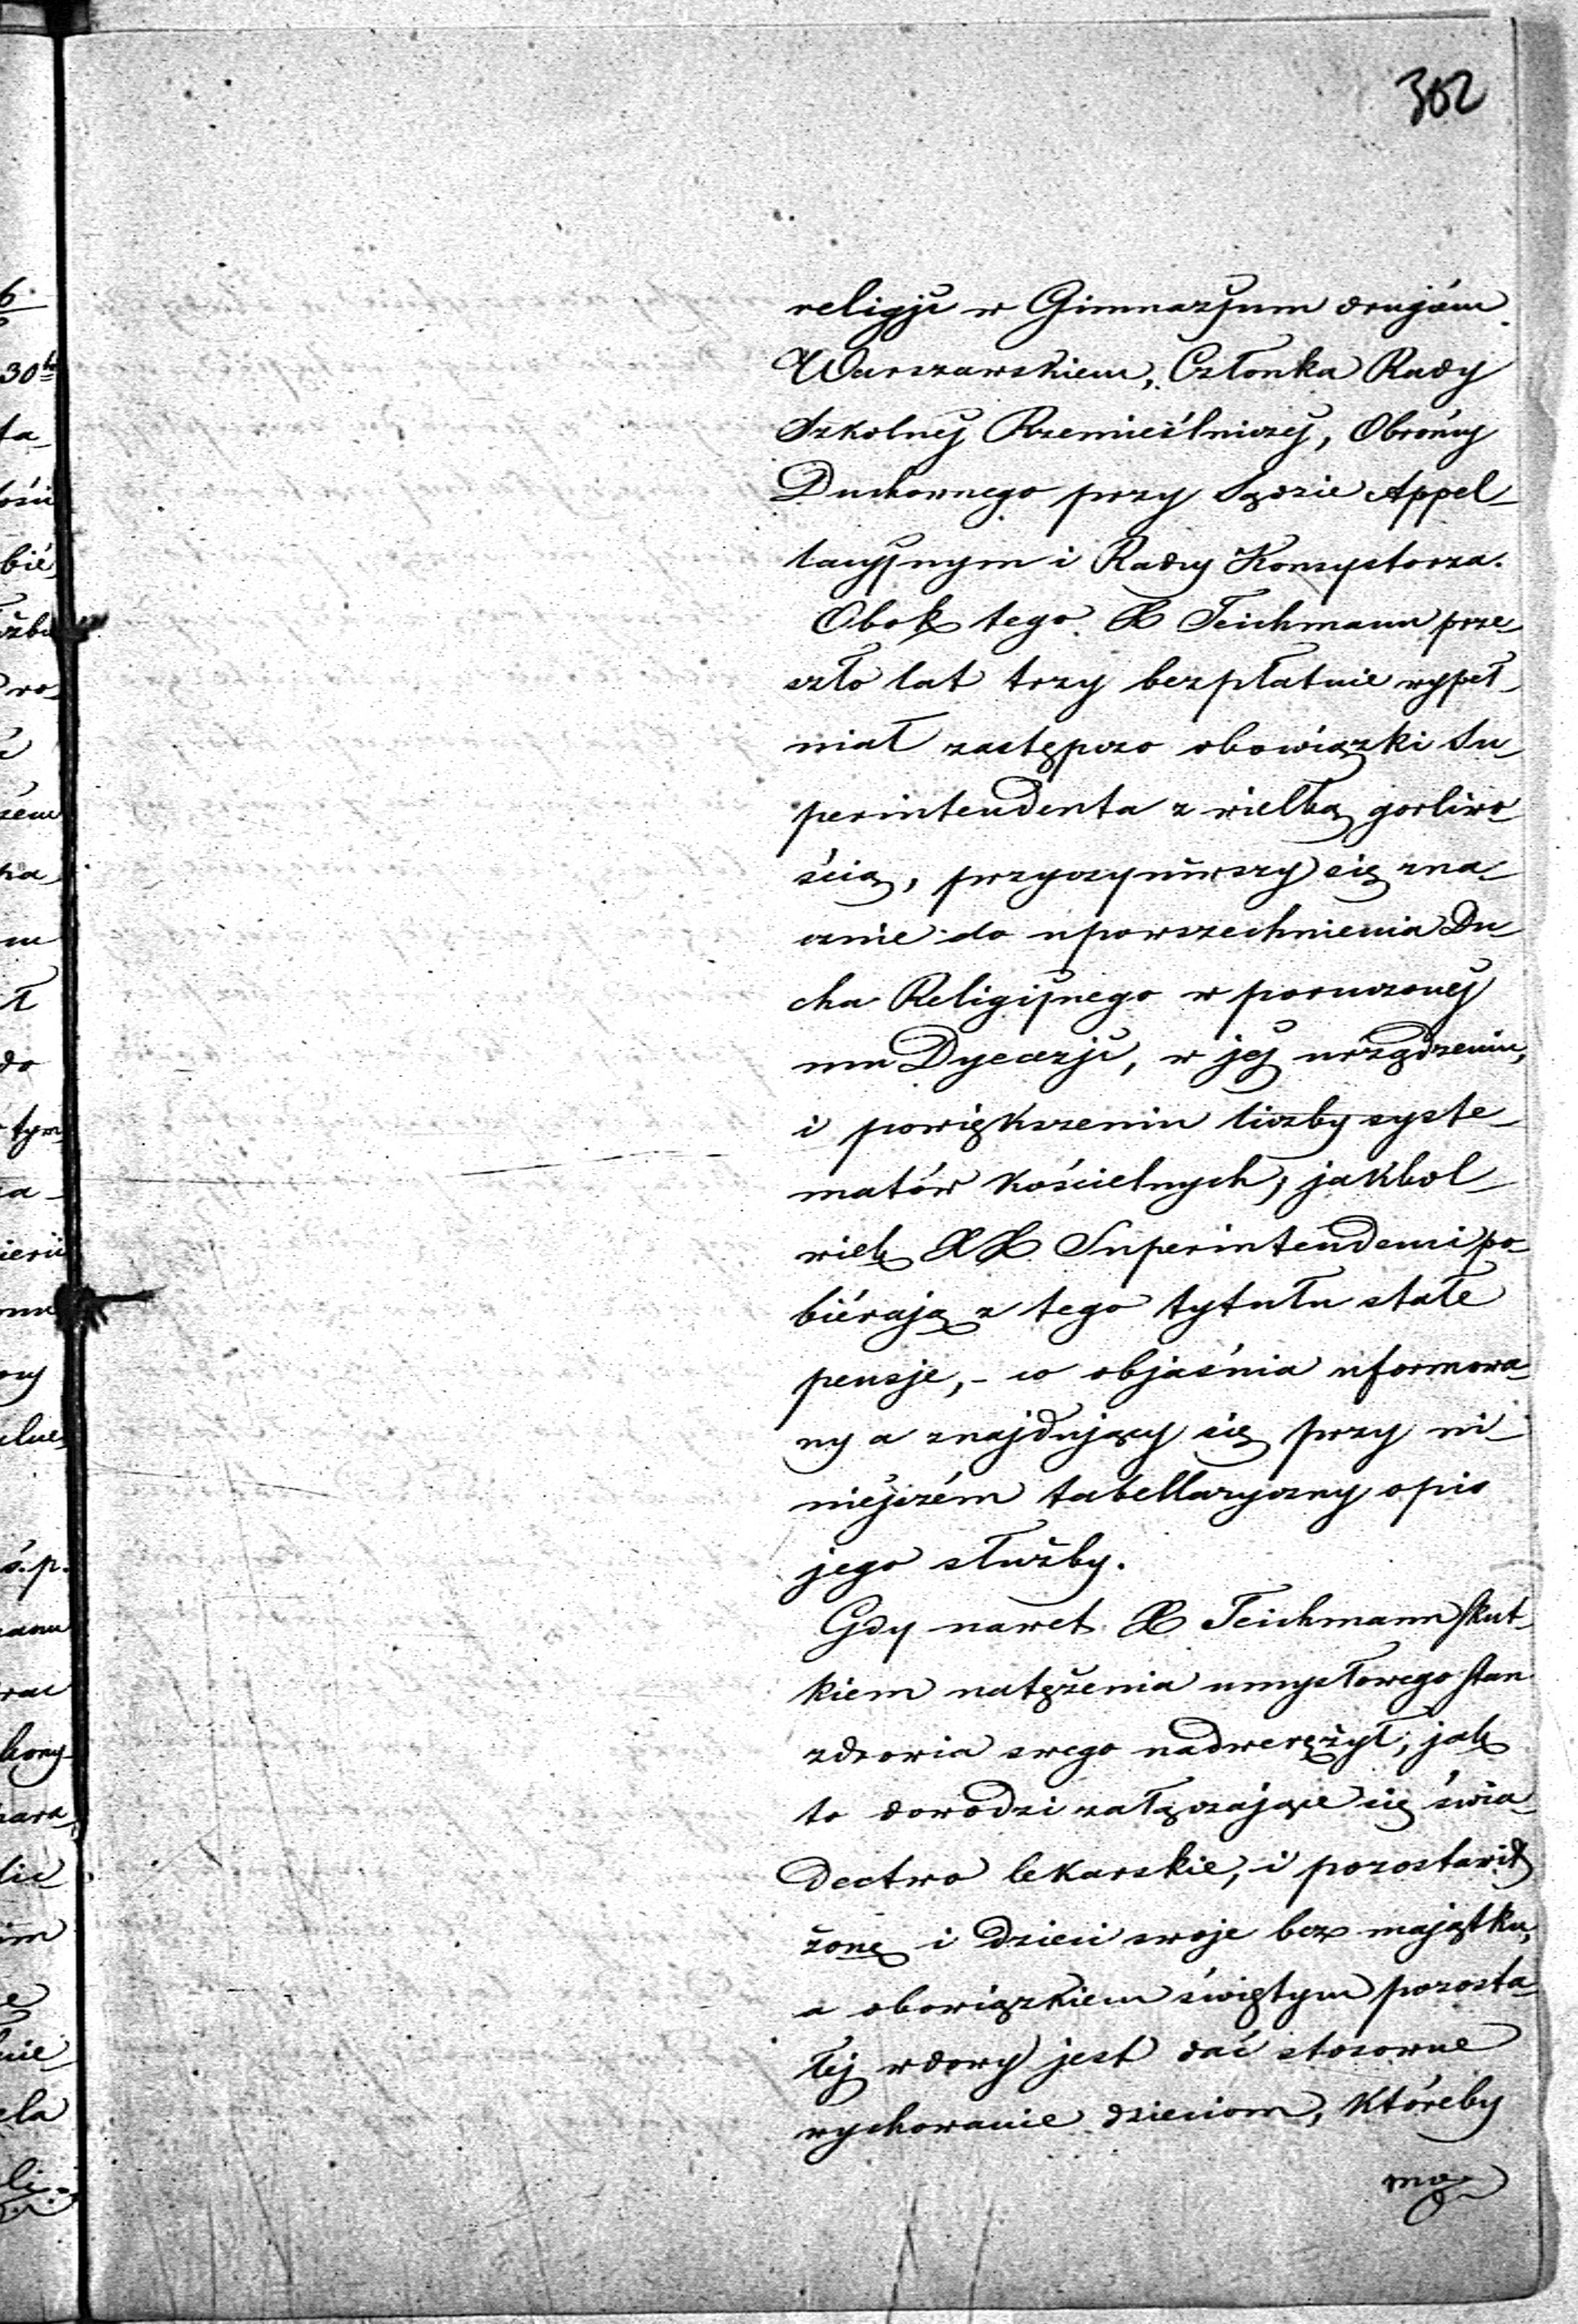 302
religji w Gimnazjum drugiém
Warszawskiem, Członka Rady
Szkolnej Rzemieślniczej, Obrońcy
Duchownego przy Sądzie Appel-
lacyjnym i Radcy Konsystorza.
Obok tego X Teichmann prze-
szło lat trzy bezpłatnie wypeł-
niał zastępczo obowiązki Su-
perintendenta z wielką gorliwo-
ścią, przyczyniwszy się zna-
cznie do upowszechnienia Du-
cha Religijnego w poruczonej
mu Dyecezji, w jej urządzeniu,
i powiększeniu liczby syste-
matów kościelnych, jakkol-
wiek XX Superintendenci po-
biérają z tego tytułu stałe
pensje, - co objaśnia uformowa-
ny a znajdujący się przy ni-
niejszém tabellaryczny opis
jego służby.
Gdy nawet X Teichmann skut-
kiem natężenia umysłowego stan
zdrowia swego nadwerężył, jak
to dowodzi załączające się świa-
dectwo lekarskie, i pozostawił
żonę i dzieci swoje bez majątku,
a obowiązkiem świętym pozosta-
łej wdowy jest dać stosowne
wychowanie dzieciom, któreby
mo-
6.
30
ta-
bié
wo-
do
tym
a-
ś.p.